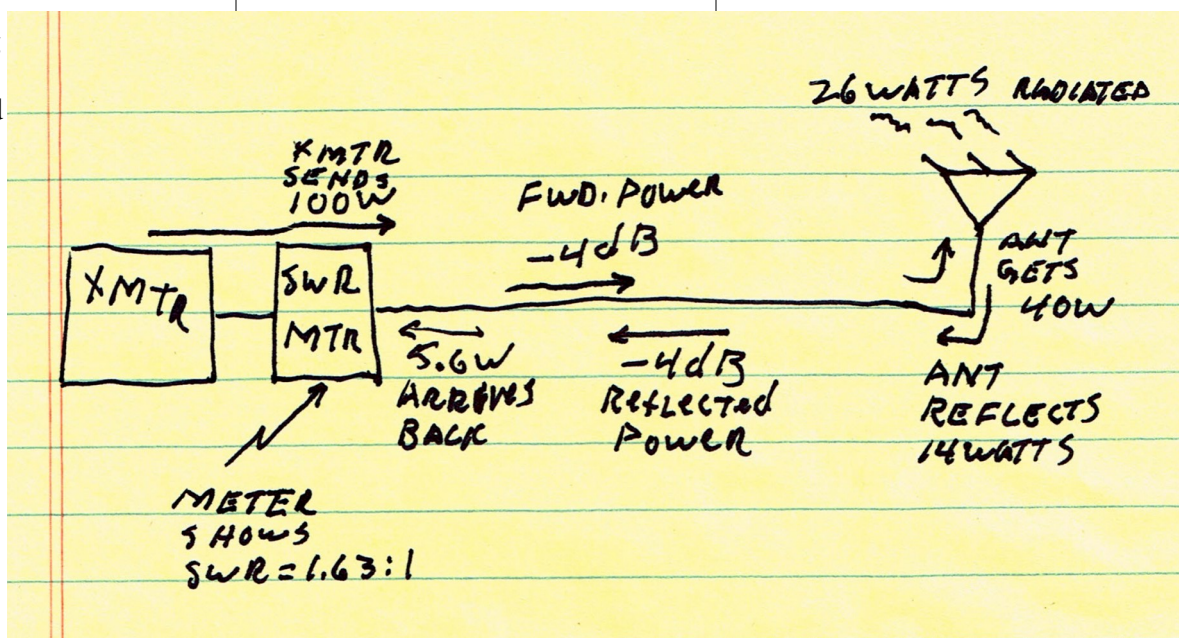 26 WATTS RADIATED
XMTR
SENDS
100W
FWD. POWER
-4dB
XMTR
SWR
MTR
ANT
GETS
40W
5.6W
ARRIVES
BACK
-4dB
Reflected
POWER
ANT
REFLECTS
14 WATTS
METER
SHOWS
SWR = 1.63:1